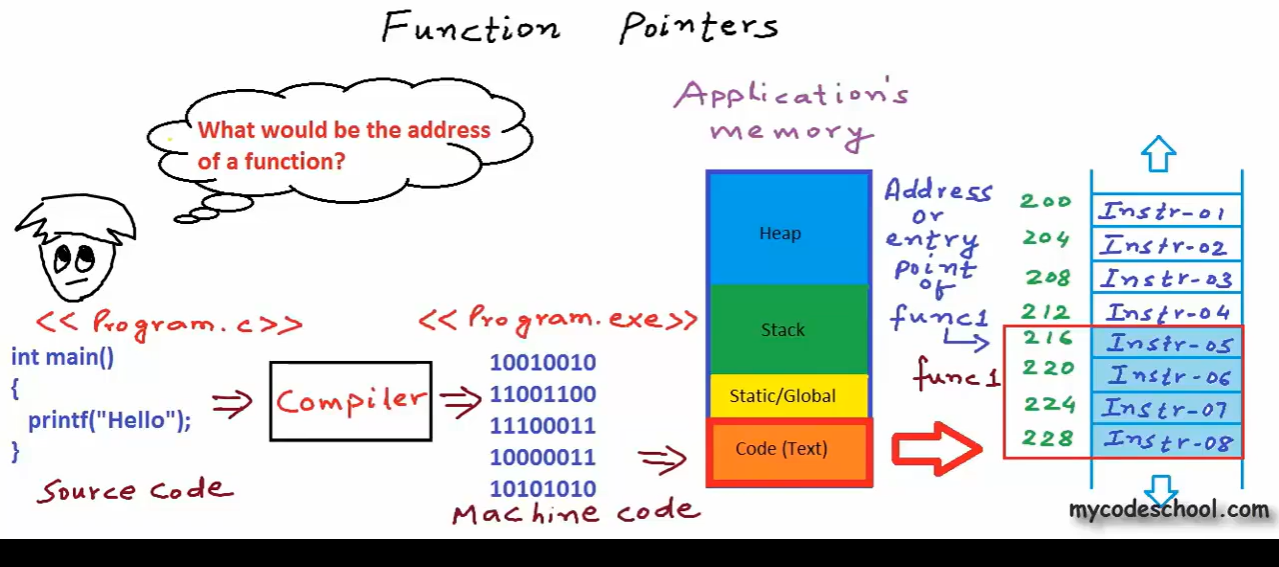 Function Pointers
What would be the address
of a function?
<< Program.c>>
int main()
{
printf("Hello");
}
Source code
Compiler
<< Program.exe>>
10010010
11001100
11100011
10000011
10101010
Machine code
Application's
memory
Heap
Stack
Static/Global
Code (Text)
Address
or
entry
point
of
func1
func1
200 Instr-01
204 Instr-02
208 Instr-03
212 Instr-04
216 Instr-05
220 Instr-06
224 Instr-07
228 Instr-08
mycodeschool.com